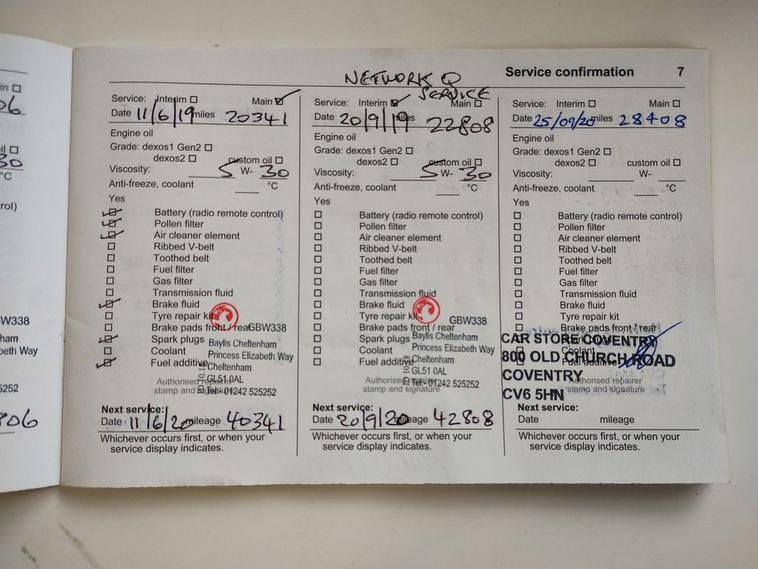 NETWORK Q
SERVICE
Service confirmation 7
Service: Interim Main
Date 11/6/19 miles 20341
Engine oil
Grade: dexos1 Gen2
dexos2 custom oil
Viscosity: 5 W- 30
Anti-freeze, coolant °C
Yes
Battery (radio remote control)
Pollen filter
Air cleaner element
Ribbed V-belt
Toothed belt
Fuel filter
Gas filter
Transmission fluid
Brake fluid
Tyre repair kit
Brake pads front / rear GBW338
Spark plugs Baylis Cheltenham
Coolant Princess Elizabeth Way
Fuel additive Cheltenham
GL51 0AL
Authorised repairer
stamp and Tel:- 01242 525252
Next service:
Date 11/6/20 mileage 40341
Whichever occurs first, or when your
service display indicates.
Service: Interim Main
Date 20/9/19 22808
Engine oil
Grade: dexos1 Gen2
dexos2 custom oil
Viscosity: 5 W- 30
Anti-freeze, coolant °C
Yes
Battery (radio remote control)
Pollen filter
Air cleaner element
Ribbed V-belt
Toothed belt
Fuel filter
Gas filter
Transmission fluid
Brake fluid
Tyre repair kit GBW338
Brake pads front / rear
Spark plugs Baylis Cheltenham
Coolant Princess Elizabeth Way
Fuel additive Cheltenham
GL51 0AL
Authorised repairer
stamp and signature Tel:- 01242 525252
Next service:
Date 20/9/20 mileage 42808
Whichever occurs first, or when your
service display indicates.
Service: Interim Main
Date 25/09/20 miles 28408
Engine oil
Grade: dexos1 Gen2
dexos2 custom oil
Viscosity: W-
Anti-freeze, coolant °C
Yes
Battery (radio remote control)
Pollen filter
Air cleaner element
Ribbed V-belt
Toothed belt
Fuel filter
Gas filter
Transmission fluid
Brake fluid
Tyre repair kit
Brake pads front / rear
CAR STORE COVENTRY
Coolant
800 OLD CHURCH ROAD
COVENTRY
Authorised repairer
stamp and signature
CV6 5HN
Next service:
Date mileage
Whichever occurs first, or when your
service display indicates.